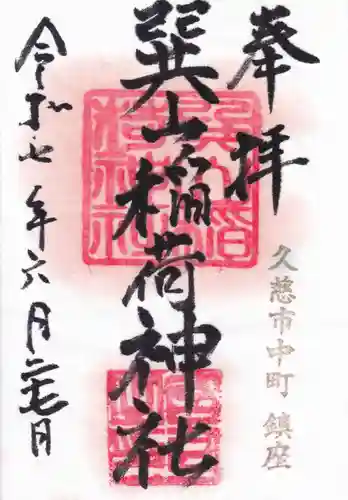 奉拝
久慈市中町 鎮座
巽山稲荷神社
令和七年六月二七日